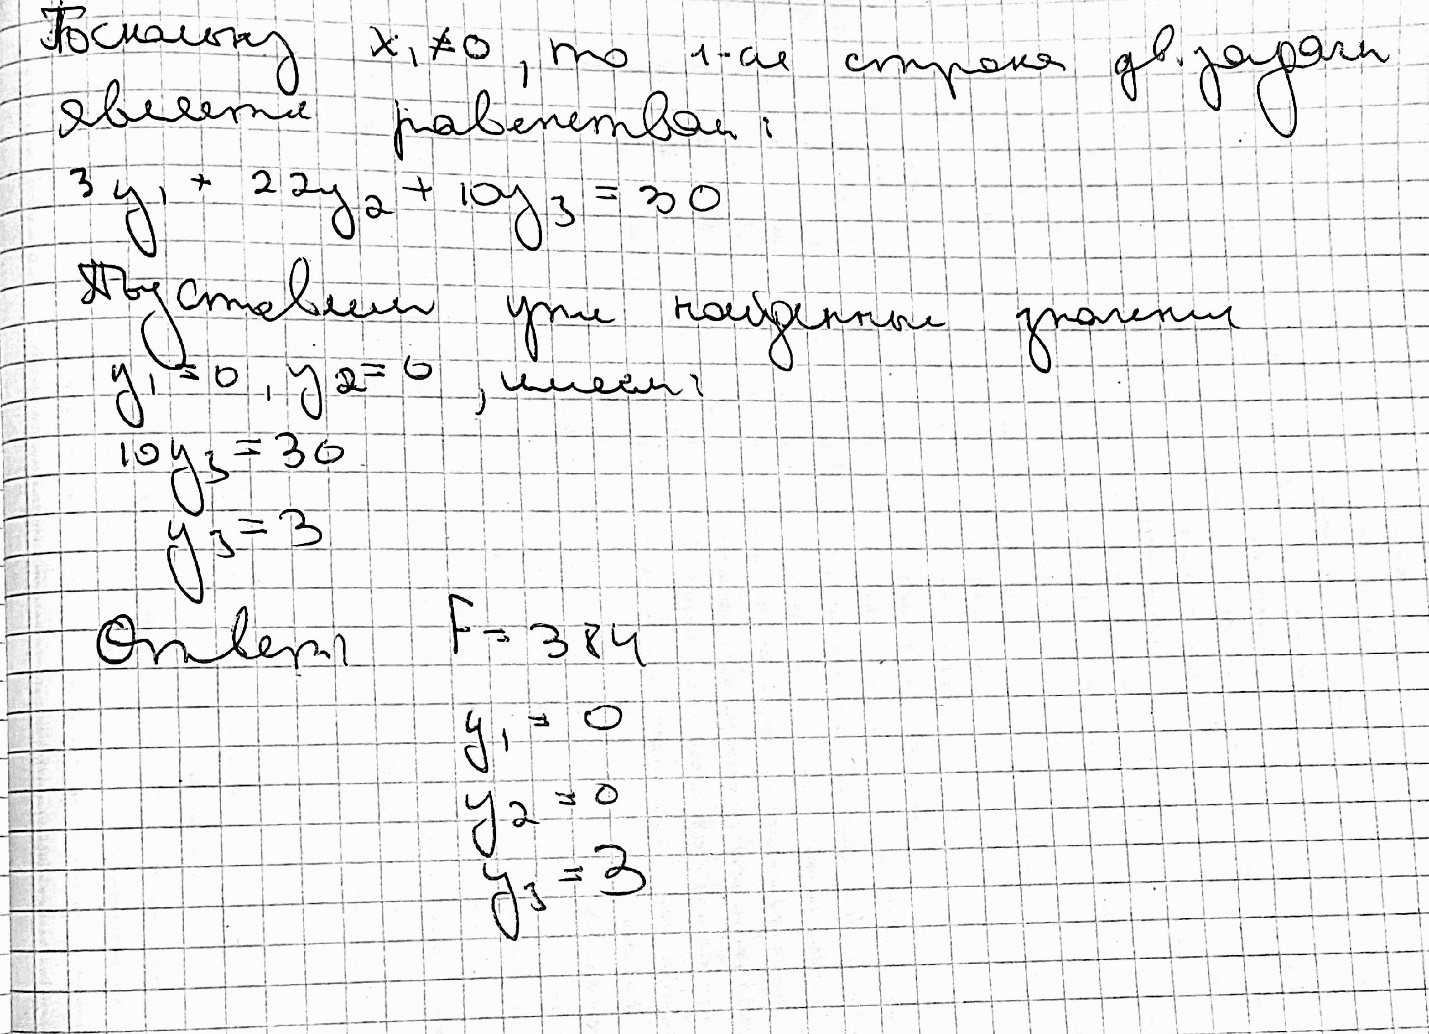 Поскольку x₁≠0, то 1-ая строка дв. задачи
является равенством:
3y₁ + 22y₂ + 10y₃ = 30
Подставим уже найденные значения
y₁=0, y₂=0, имеем:
10y₃=30
y₃=3
Ответ: F=384
y₁=0
y₂=0
y₃=3